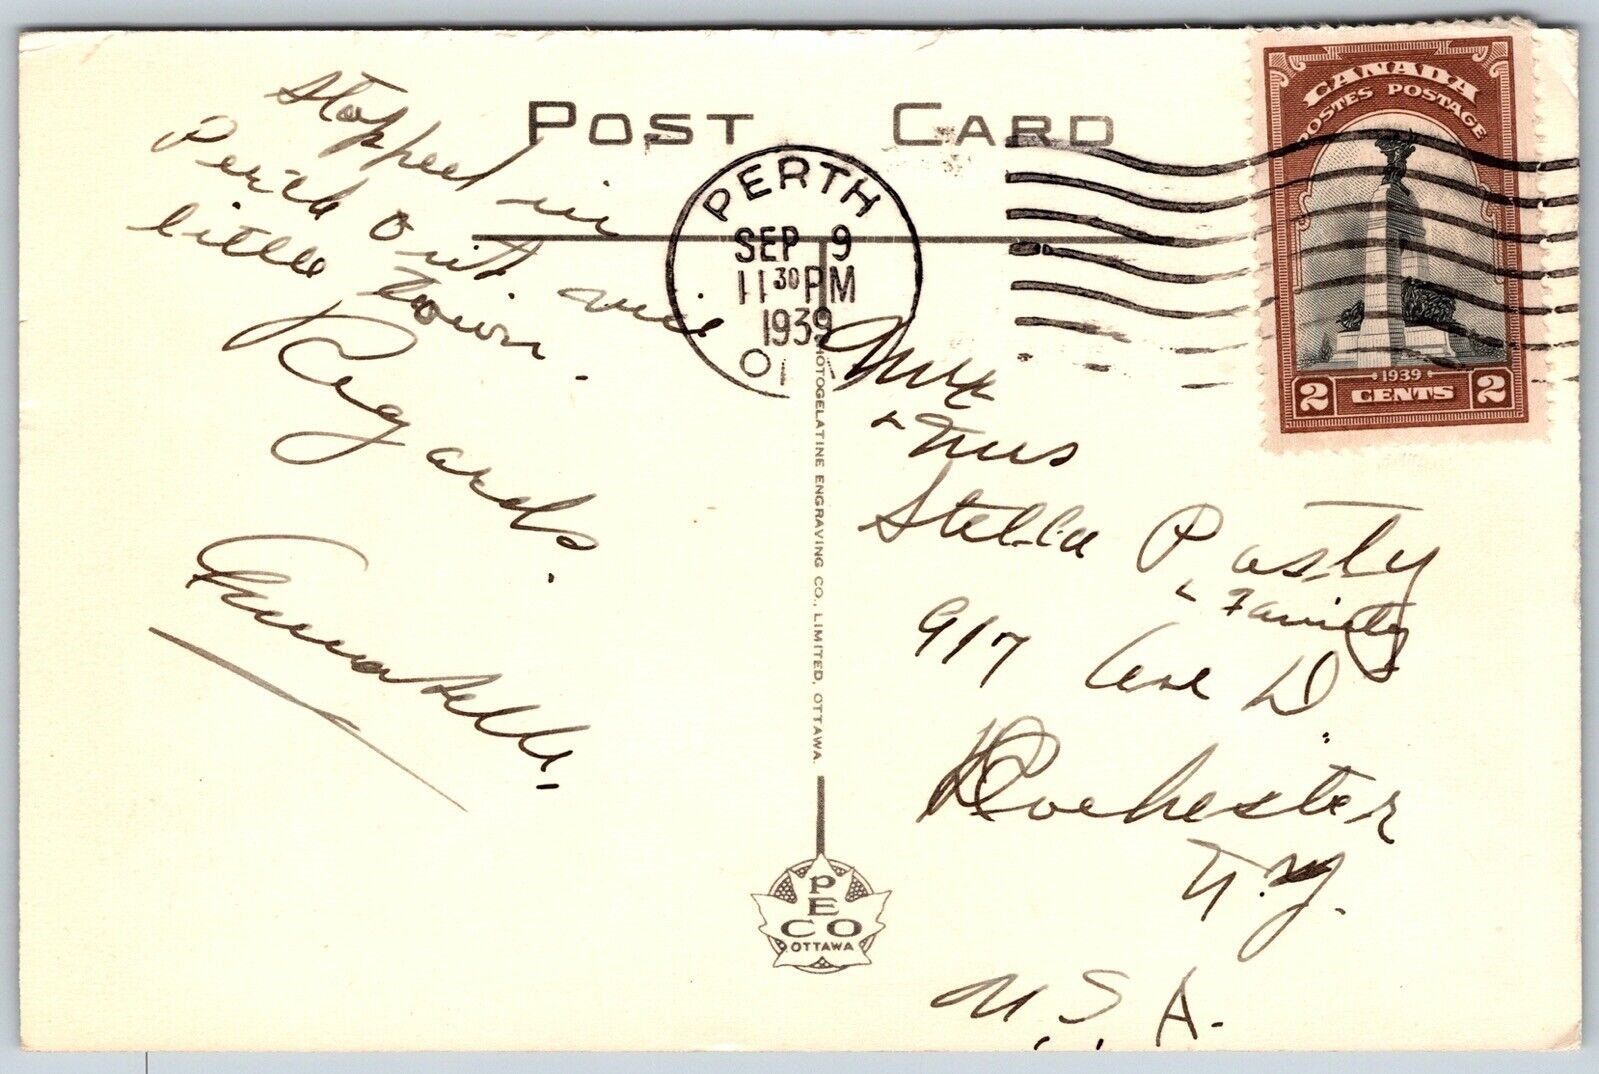 POST CARD
Stopped in
Perth Ont. nice
little town.
Regards.
PERTH
SEP 9
11 30 PM
1939
CANADA
POSTES POSTAGE
1939
2 CENTS 2
Mr.
& Mrs
Stella Pasty
& Family
917 Ave D.
Rochester
N.Y.
U.S.A.
PHOTOGELATINE ENGRAVING CO., LIMITED, OTTAWA.
PECO
OTTAWA